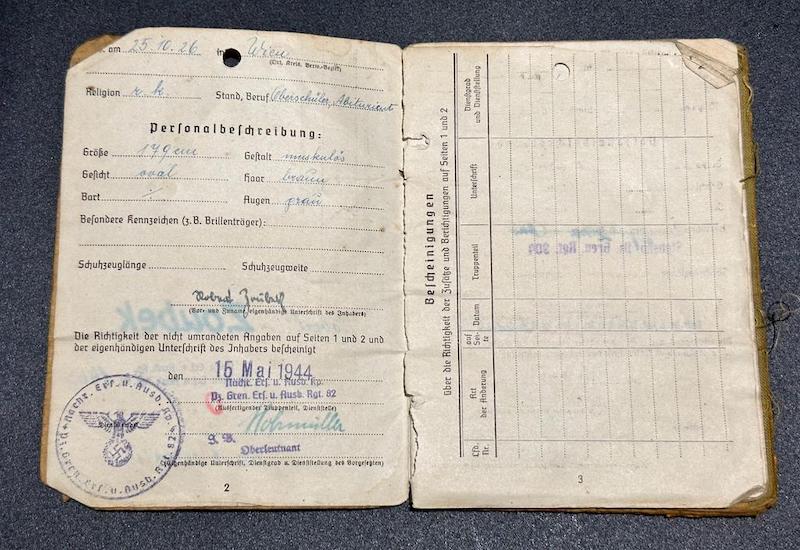 am 25.10.26 in Wien
(Ort, Kreis, Verw.-Bezirk)
Religion r. k. Stand, Beruf Oberschüler, Abiturient
Personalbeschreibung:
Größe 179 cm Gestalt muskulös
Gesicht oval Haar braun
Bart ./. Augen grau
Besondere Kennzeichen (z. B. Brillenträger):
Schuhzeuglänge Schuhzeugweite
(Vor- und Zuname, eigenhändige Unterschrift des Inhabers)
Die Richtigkeit der nicht umrandeten Angaben auf Seiten 1 und 2 und
der eigenhändigen Unterschrift des Inhabers bescheinigt
den 15 Mai 1944
Nachr. Erf. u. Ausb. Kp.
Pz. Gren. Erf. u. Ausb. Rgt. 82
(Ausfertigender Truppenteil, Dienststelle)
Oberleutnant
(Eigenhändige Unterschrift, Dienstgrad u. Dienststellung des Vorgesetzten)
2
Bescheinigungen
über die Richtigkeit der Zusätze und Berichtigungen auf Seiten 1 und 2
Lfd. Nr.
Art der Änderung
auf Seite
Datum
Truppenteil
Unterschrift
Dienstgrad und Dienststellung
3